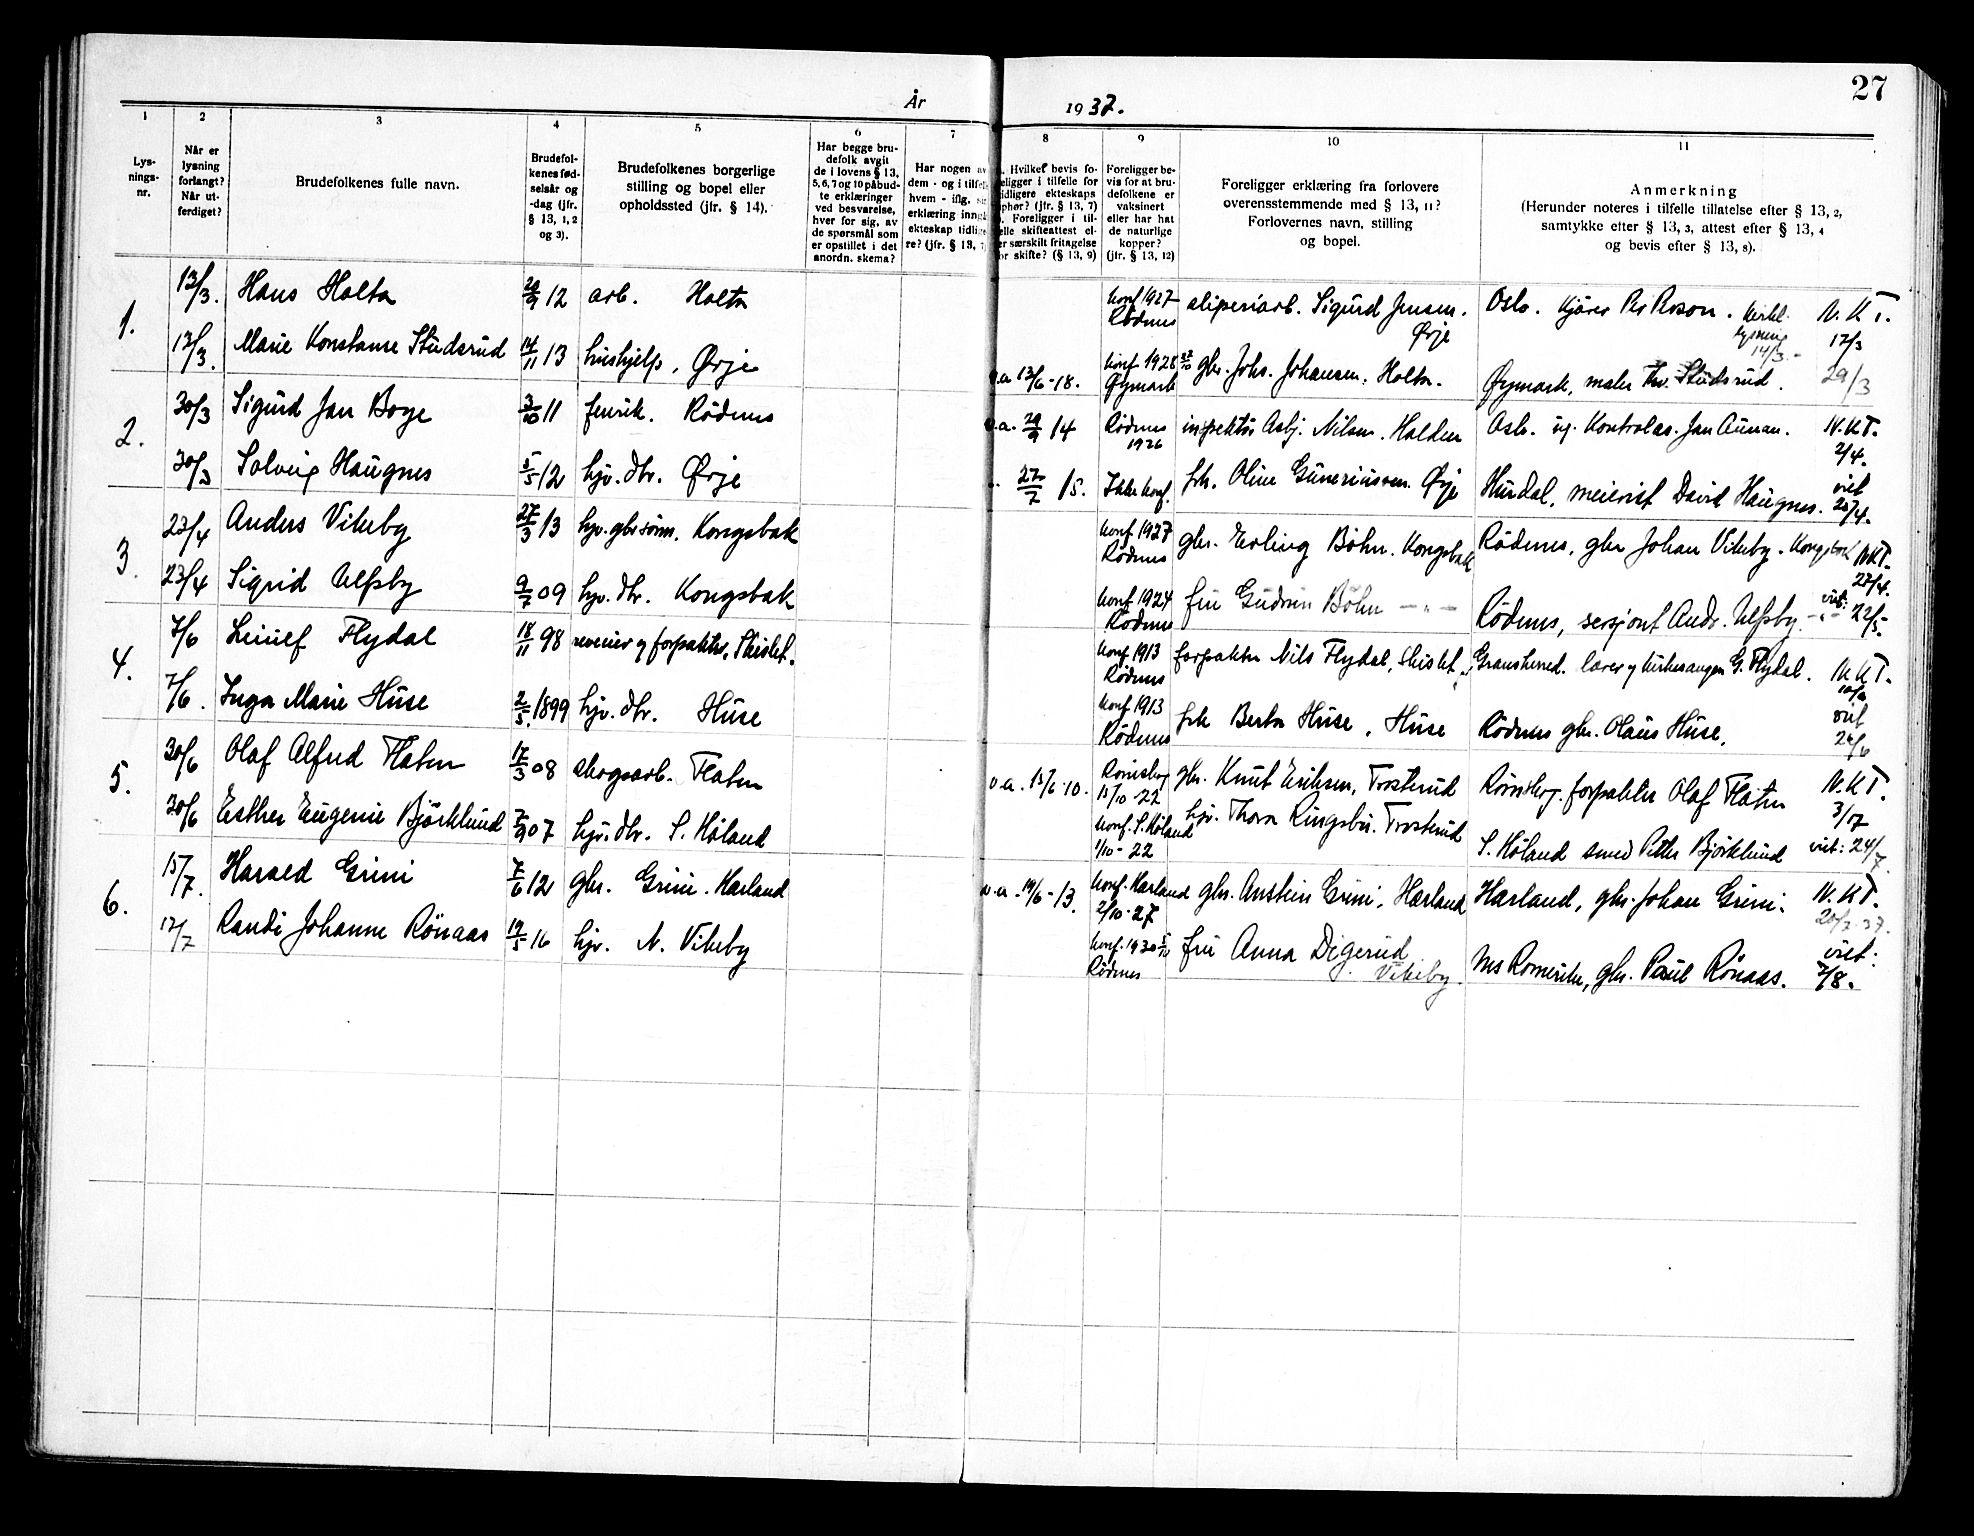 27
År 1937.
1 2 3 4 5 6 7 8 9 10 11
Lys-
nings-
nr.
Når er
lysning
forlangt?
Når ut-
ferdiget?
Brudefolkenes fulle navn.
Brudefol-
kenes fød-
selsår og
-dag (jfr.
§ 13, 1, 2
og 3).
Brudefolkenes borgerlige
stilling og bopel eller
opholdssted (jfr. § 14).
Har begge bru-
defolk avgit
de i lovens § 13,
5, 6, 7 og 10 påbud-
te erklæringer
ved besvarelse,
hver for sig, av
de spørsmål som
er opstillet i det
anordn. skema?
Har nogen av
dem - og i tilfelle
hvem - iflg.
erklæring inng
ekteskap tidlige
re? (jfr. § 13,
Hvilket bevis fo-
religger i tilfelle for
tidligere ekteskaps
ophør? (jfr. § 13, 7)
Foreligger i til-
felle skifteattest el-
er særskilt fritagelse
or skifte? (§ 13, 9)
Foreligger be-
vis for at bru-
defolkene er
vaksinert
eller har hat
de naturlige
kopper?
(jfr. § 13, 12)
Foreligger erklæring fra forlovere
overensstemmende med § 13, 11?
Forlovernes navn, stilling
og bopel.
Anmerkning
(Herunder noteres i tilfelle tillatelse efter § 13, 2,
samtykke efter § 13, 3, attest efter § 13, 4
og bevis efter § 13, 8).
1.
12/3. Hans Holta 20/9 12 arb. Holta konf 1927 Rødenes sliperiarb. Sigurd Jensen. Ørje Oslo. kjører Per Person. kirkel. lysning 14/3 N.K.T. 12/3
12/3. Marie Konstanse Studsrud 14/11 13 hushjelp, Ørje v.a 13/6-18. konf 1928 Øymark gbr. Johs. Johansen. Holta. Øymark, maler Thv. Studsrud. 29/3
2.
30/3 Sigurd Jan Boye 3/10 11 fenrik. Rødenes v.a. 29/9 14 Rødenes 1926 inspektør Asbj. Nilsen. Halden Oslo. Kontrolas. Jan Aunan. N.K.T. 2/4.
30/3 Solveig Haugnes 5/5 12 hjv. dtr. Ørje 27/7 15. Ikke konf. frk. Oline Guneriussen. Ørje Hurdal, meierist David Haugnes. viet 25/4.
3.
23/4 Anders Vikeby 27/3 13 hjv. gbr sønn. Kongsbak konf 1927 Rødenes gbr. Erling Bøhn. Kongsbak Rødenes, gbr Johan Vikeby. Kongsbak N.K.T. 23/4.
23/4 Sigrid Ulfsby 9/7 09 hjv. dtr. Kongsbak konf 1924 Rødenes fru Gudrun Bøhn — „ — Rødenes, sersjant Andr. Ulfsby. — „ — viet: 22/5.
4.
7/6 Leiulf Flydal 18/11 98 revenier og forpakter, Skislet. konf 1913 Rødenes forpakter Nils Flydal, Skislet Gransherred. lærer og kirkesanger G. Flydal. N.K.T. 10/6
7/6. Inga Marie Huse 2/5. 1899 hjv. dtr. Huse konf 1913 Rødenes frk Berta Huse, Huse Rødenes gbr. Olaus Huse. viet 26/6
5.
30/6 Olaf Alfred Flaten 17/3 08 skogsarb. Flaten v.a. 15/6-10. Rømskog 15/10-22 gbr. Knut Eriksen, Trosterud Rømskog. forpakter Olaf Flaten N.K.T. 3/7
30/6 Esther Eugenie Björklund 7/9 07 hjv. dtr. S. Høland konf. S. Høland 1/10-22 hjv. Thora Ringsbu. Trosterud S. Høland smed Petter Björklund viet: 24/7.
6.
15/7. Harald Grini 7/6 12 gbr. Grini. Hærland v.a. 19/6-13. konf. Hærland 2/10-27 gbr. Anstein Grini, Hærland Hærland, gbr. Johan Grini. N.K.T. 20/7.37.
17/7 Randi Johanne Rönaas 19/5 16 hjv. N. Vikeby konf. 1930 Rødenes fru Anna Digerud. Vikeby. Nes Romerike, gbr. Paul Rönaas. viet: 7/8.